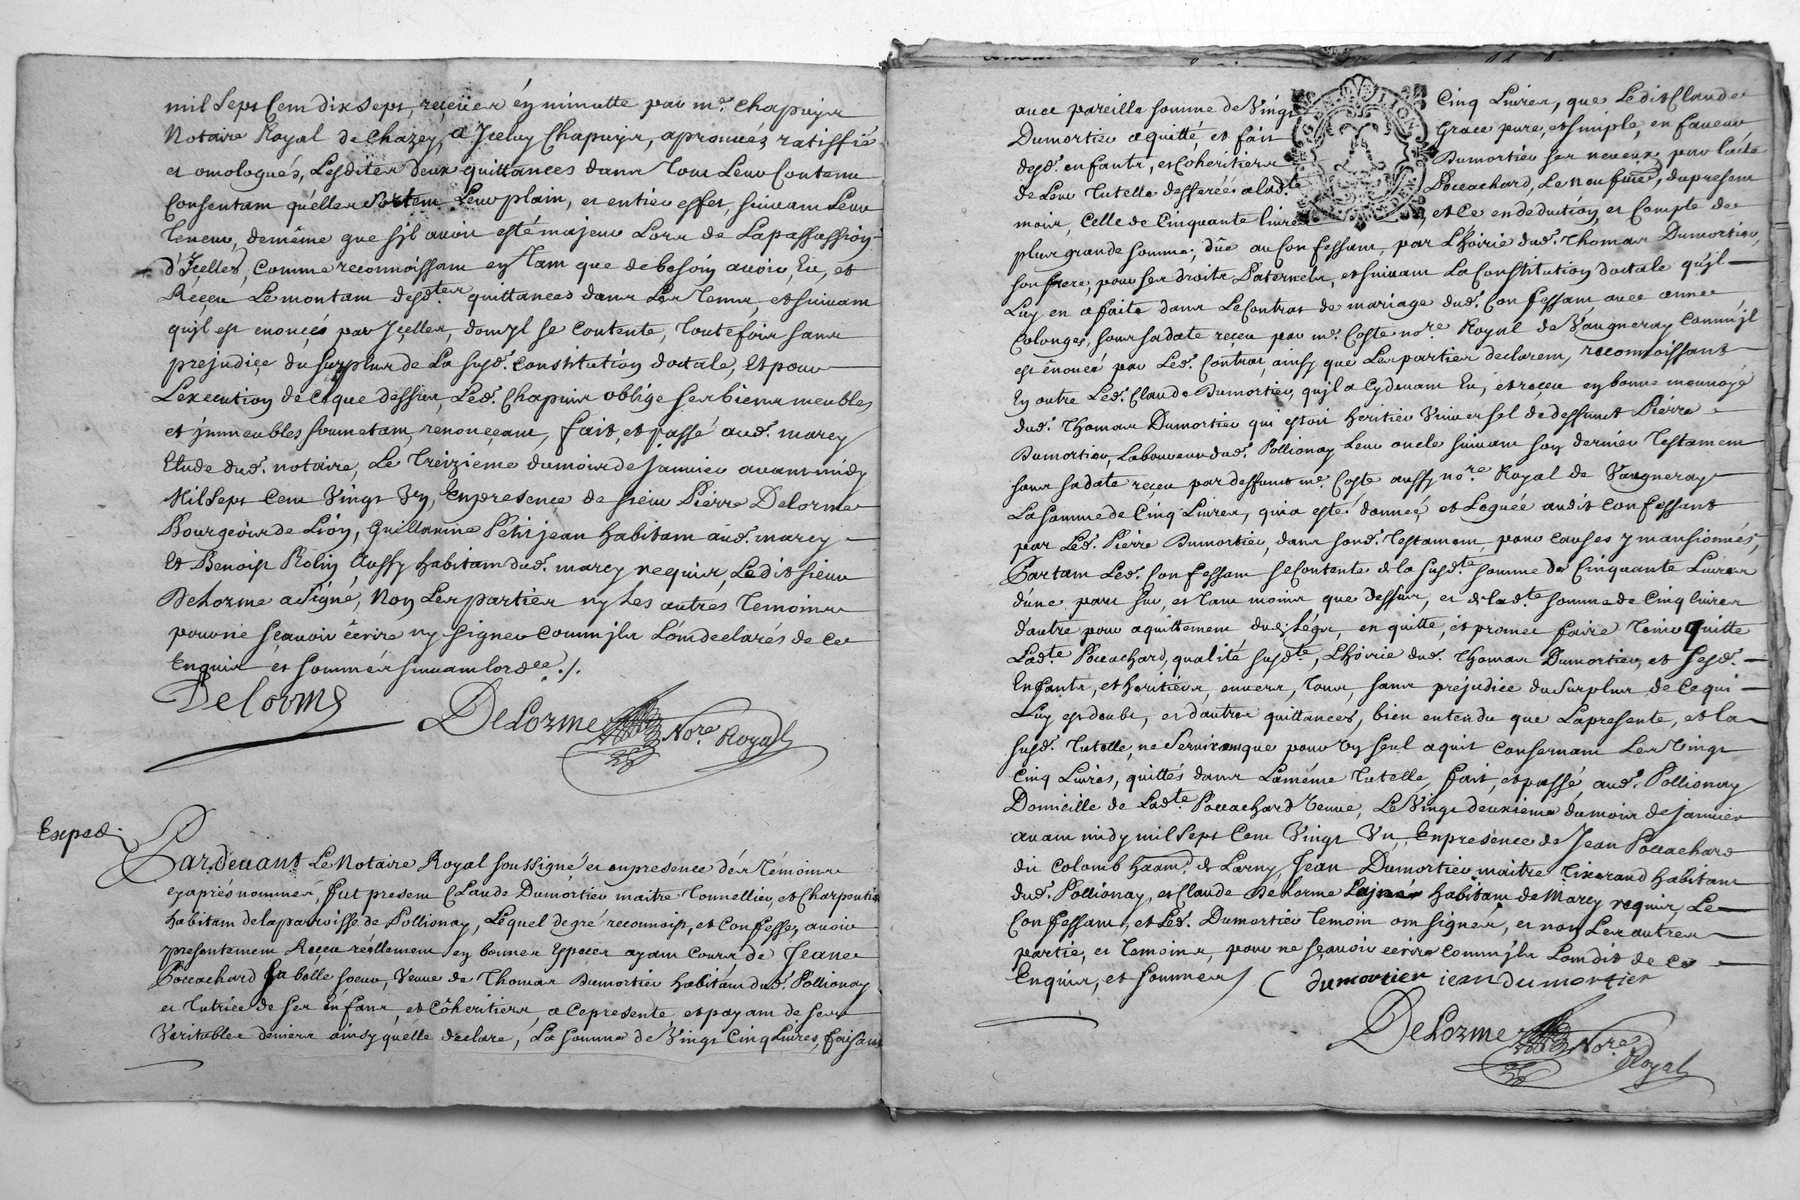 mil Sept Cent dix Sept, reçües en minutte par me. Chapuys
Notaire Royal de Chazey, a Jceluy Chapuys, aprouués ratiffié
et omologués, Lesdites deux quittances dans tout Leur Contenu
Consentant qu'elles Sortent Leur plain, et entier effet, suiuant Leur
teneur, de même que s'jl auoit esté majeur Lors de La passassion
d'Jcelles, comme reconnoissant en tant que de besoin auoir, Eu, et
Reçeu Le montant desdtes quittances dans Les tems, et suiuant
qu'jl est enoncés par Jçelles, dont jl se contente, toutefois sans
prejudiçe du surplus de La susd. constitution dottale, Et pour
L'execution de ce que dessus, Led. Chapuis oblige ses biens meubles
et jmmeubles soumettant, renonçeant, fait, et passé aud. marcy
Etude dud. notaire, Le treizieme du mois de januier auant midy
Mil Sept Cent Vingt Vn, En presence de sieur Pierre Delorme
Bourgeois de Lion, Guillaume Petitjean habitant aud. marcy
Et Benoist Rolin Aussy habitant dud. marcy requis, Ledit sieur
Delorme a signé, Non Les parties ny Les autres temoins
pour ne sçauoir écrire ny signer comm'jls L'ont declarés de ce
Enquis et sommés suiuant lordce ./.
Delorme
DeLorme Nore. Royal
Exped.
Pardeuant Le Notaire Royal soussigné et en presence des témoins
cy aprés nommés, fut present Claude Dumortier maitre tonnellier, et Charpentier
habitant de la parroisse de Pollionay, Lequel de gré reconnoist, et confesse, auoir
presentement Reçeu réellement en bonnes Espeçes ayant cours de Jeane
Poccachard sa belle soeur, Veuue de Thomas Dumortier habitant dud. Pollionay
et tutriçe de ses enfans, et Côheritiers, a ce presente et payant de ses
Veritables deniers ainsy qu'elle declare, La somme de Vingt Cinq Liures, faisant
auec pareille somme de Vingt Cinq Liures, que Ledit Claude
Dumortier a quitté, et fait Grace pure, et simple, en faueur
desd. enfants, et Coheritiers Dumortier ses neueux, par lacte
de Leur tutelle defferée a ladte. Poccachard, Le neufuie., du present
mois, Celle de Cinquante liures, et Ce en deduction, et Compte de
plus grande somme, dûe au confessant, par L'hoirie dud. Thomas Dumortier,
son frere, pour ses droits Paternels, et suiuant La Constitution dottale qu'jl
Luy en a faite dans Le Contrat de mariage dud. Confessant auec annee
Colonges, sous sa date reçeu par me. Coste nore. Royal de Vaugneray comm'jl
est énoncé par Led. Contrat, ainsy que Les parties declarent, reconnoissant
En outre Led. Claude Dumortier, qu'jl a Cydeuant Eu, et reçeu en bonne monnoye
dud. Thomas Dumortier qui estoit heritier Vniuersel de deffunct Pierre
Dumortier, Laboureur dud. Pollionay Leur oncle suiuant son dernier Testament
sous sa date reçeu par deffunt me. Coste aussy nore. Royal de Vaugneray
La somme de Cinq Liures, qui a esté donnée, et Leguée audit confessant
par Led. Pierre Dumortier, dans sond. Testament, pour causes y mansionnés,
Partant Led. Confessant se Contente de la susdte. somme de Cinquante Liures
d'une part sur, et tant moins que dessus, et de ladte. somme de Cinq liures
d'autre pour aquittement dud. Legs, en quitte, et promet faire tenir quitte
Ladte. Poccachard, qualité susdte., L'hoirie dud. Thomas Dumortier, et sesd.
Enfants, et heritiers, enuers, tous, sans préjudice du surplus de ce qui
Luy est doubt, et d'autres quittances, bien entendu que La presente, et la
susd. tutelle, ne seruiront que pour Vn seul aquit consernant Les Vingt
Cinq Liures, quittés dans La même tutelle, fait, et passé, aud. Pollionay
Domicille de Ladte. Poccachard Veuue, Le Vingt deuxieme du mois de januier
auant midy mil Sept Cent Vingt Vn, En presence de Jean Poccachard
du Colomb haant. de Larny, Jean Dumortier maitre tixerand habitant
dud. Pollionay, et Claude Delorme Lajné habitant de Marcy requis, Le
Confessant, et Led. Dumortier temoin ont signés, et non Les autres
partie, et temoins, pour ne sçauoir ecrire comm'jls L'ont dit de ce
Enquis, et sommés
dumortier jean dumortier
DeLorme Nore. Royal